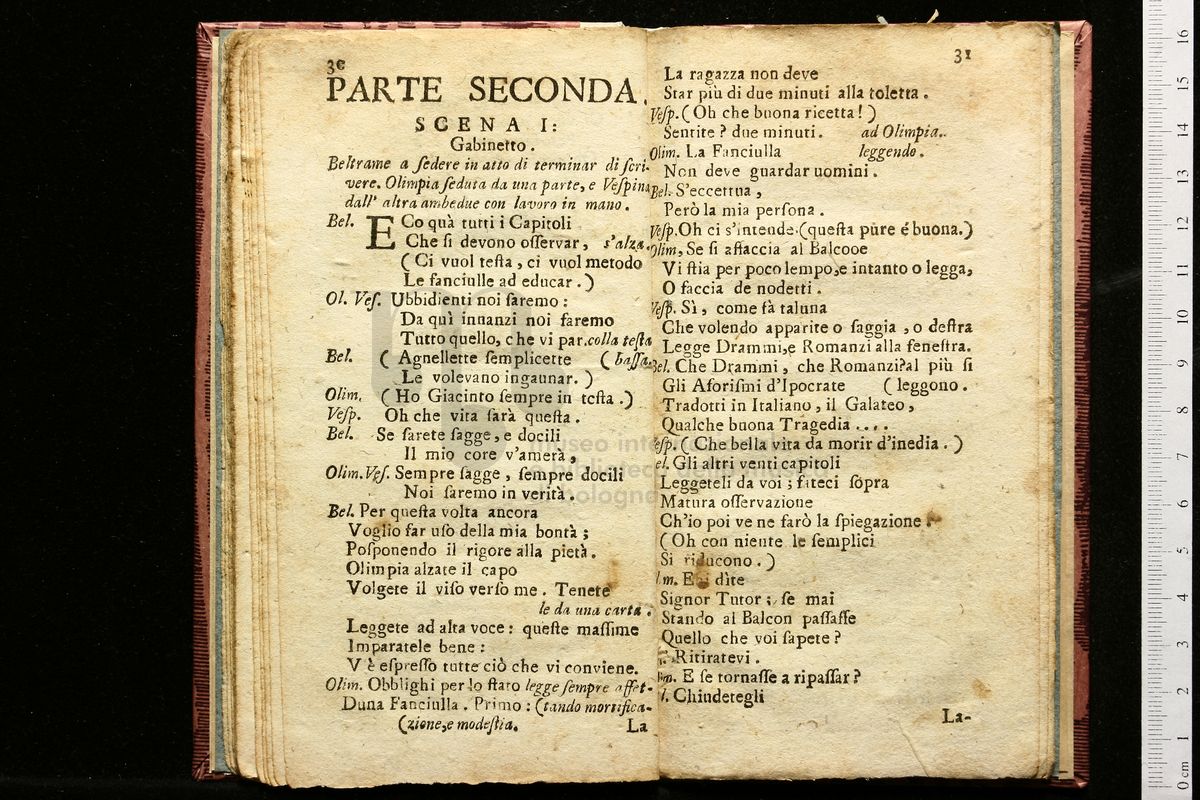 30
PARTE SECONDA.
SCENA I:
Gabinetto.
Beltrame a ſedere in atto di terminar di ſcri-
vere. Olimpia ſeduta da una parte, e Veſpina
dall' altra ambedue con lavoro in mano.
Bel. ECo quà tutti i Capitoli
Che ſi devono oſſervar, s'alza.
(Ci vuol teſta, ci vuol metodo
Le fanciulle ad educar.)
Ol. Veſ. Ubbidienti noi ſaremo:
Da quì innanzi noi faremo
Tutto quello, che vi par. colla teſta
Bel. (Agnellette ſemplicette (baſſa.
Le volevano ingannar.)
Olim. (Ho Giacinto ſempre in teſta.)
Veſp. Oh che vita ſarà queſta.
Bel. Se ſarete ſagge, e docili
Il mio core v'amerà,
Olim. Veſ. Sempre ſagge, ſempre docili
Noi ſaremo in verità.
Bel. Per queſta volta ancora
Voglio far uſo della mia bontà;
Poſponendo il rigore alla pietà.
Olimpia alzate il capo
Volgete il viſo verſo me. Tenete
le da una carta.
Leggete ad alta voce: queſte maſſime
Imparatele bene:
V'è eſpreſſo tutte ciò che vi conviene.
Olim. Obblighi per lo ſtato legge ſempre affet-
Duna Fanciulla. Primo: (tando mortifica-
(zione, e modeſtia. La
31
La ragazza non deve
Star più di due minuti alla toletta.
Veſp. (Oh che buona ricetta!)
Sentite? due minuti. ad Olimpia.
Olim. La Fanciulla leggendo.
Non deve guardar uomini.
Bel. S'eccettua,
Però la mia perſona.
Veſp. Oh ci s'intende. (queſta pure é buona.)
Olim, Se ſi affaccia al Balcooe
Vi ſtia per poco tempo, e intanto o legga,
O faccia de nodetti.
Veſp. Sì, come fà taluna
Che volendo apparite o ſaggia, o deſtra
Legge Drammi, e Romanzi alla feneſtra.
Bel. Che Drammi, che Romanzi? al più ſi
Gli Aforiſmi d'Ipocrate (leggono.
Tradotti in Italiano, il Galateo,
Qualche buona Tragedia ....
eſp. (Che bella vita da morir d'inedia.)
el. Gli altri venti capitoli
Leggeteli da voi; fateci ſopra
Matura oſſervazione
Ch'io poi ve ne farò la ſpiegazione.
(Oh con niente le ſemplici
Si riducono.)
m. E dìte
Signor Tutor; ſe mai
Stando al Balcon paſſaſſe
Quello che voi ſapete?
Ritiratevi.
E ſe tornaſſe a ripaſſar?
l. Chiudetegli
La-